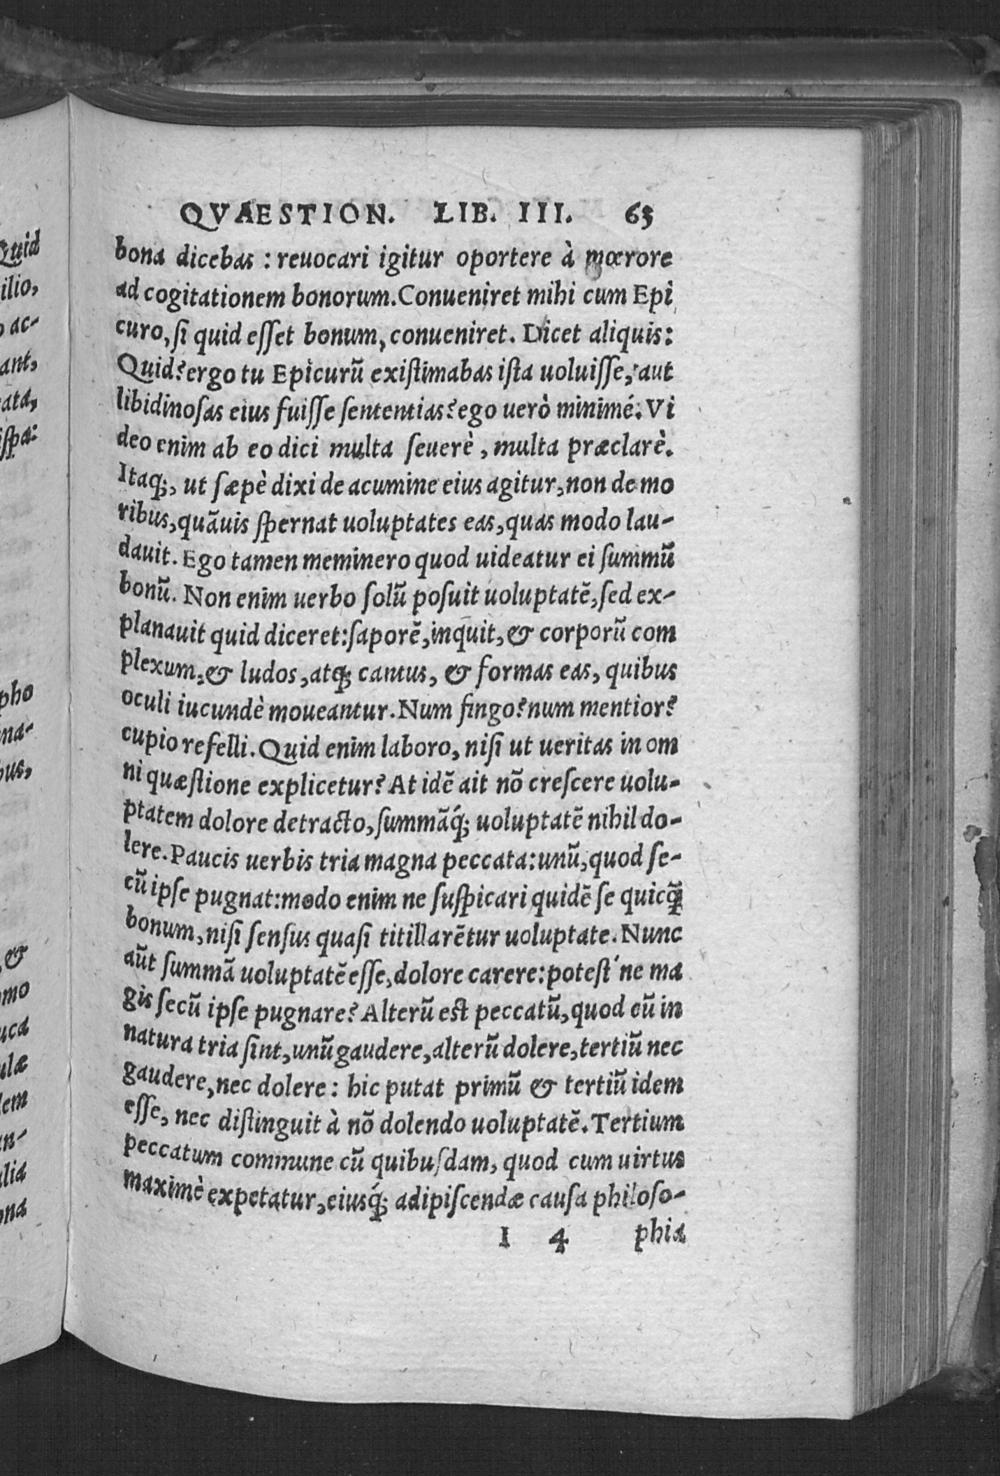 QVAESTION. LIB. III. 65
bona dicebas : reuocari igitur oportere à mœrore
ad cogitationem bonorum. Conueniret mihi cum Epi
curo, si quid esset bonum, conueniret. Dicet aliquis:
Quid? ergo tu Epicurū existimabas ista uoluisse, aut
libidinosas eius fuisse sententias? ego uerò minimé. Vi
deo enim ab eo dici multa seuerè, multa præclarè.
Itaq;, ut sæpè dixi de acumine eius agitur, non de mo
ribus, quāuis spernat uoluptates eas, quas modo lau-
dauit. Ego tamen meminero quod uideatur ei summū
bonū. Non enim uerbo solū posuit uoluptatē, sed ex-
planauit quid diceret: saporē, inquit, & corporū com
plexum, & ludos, atq; cantus, & formas eas, quibus
oculi iucundè moueantur. Num fingo? num mentior?
cupio refelli. Quid enim laboro, nisi ut ueritas in om
ni quæstione explicetur? At idē ait nō crescere uolu-
ptatem dolore detracto, summāq́; uoluptatē nihil do-
lere. Paucis uerbis tria magna peccata: unū, quod se-
cū ipse pugnat: modo enim ne suspicari quidē se quicq̄
bonum, nisi sensus quasi titillarētur uoluptate. Nunc
aūt summā uoluptatē esse, dolore carere: potest ne ma
gis secū ipse pugnare? Alterū est peccatū, quod cū in
natura tria sint, unū gaudere, alterū dolere, tertiū nec
gaudere, nec dolere : hic putat primū & tertiū idem
esse, nec distinguit à nō dolendo uoluptatē. Tertium
peccatum commune cū quibusdam, quod cum uirtus
maximè expetatur, eiusq́; adipiscendæ causa philoso-
I 4 phia
Quid
ilio,
ac-
ant,
ata,
ispa:
pho
na-
bus,
&
omo
uca
ulæ
lem
an-
alia
ona